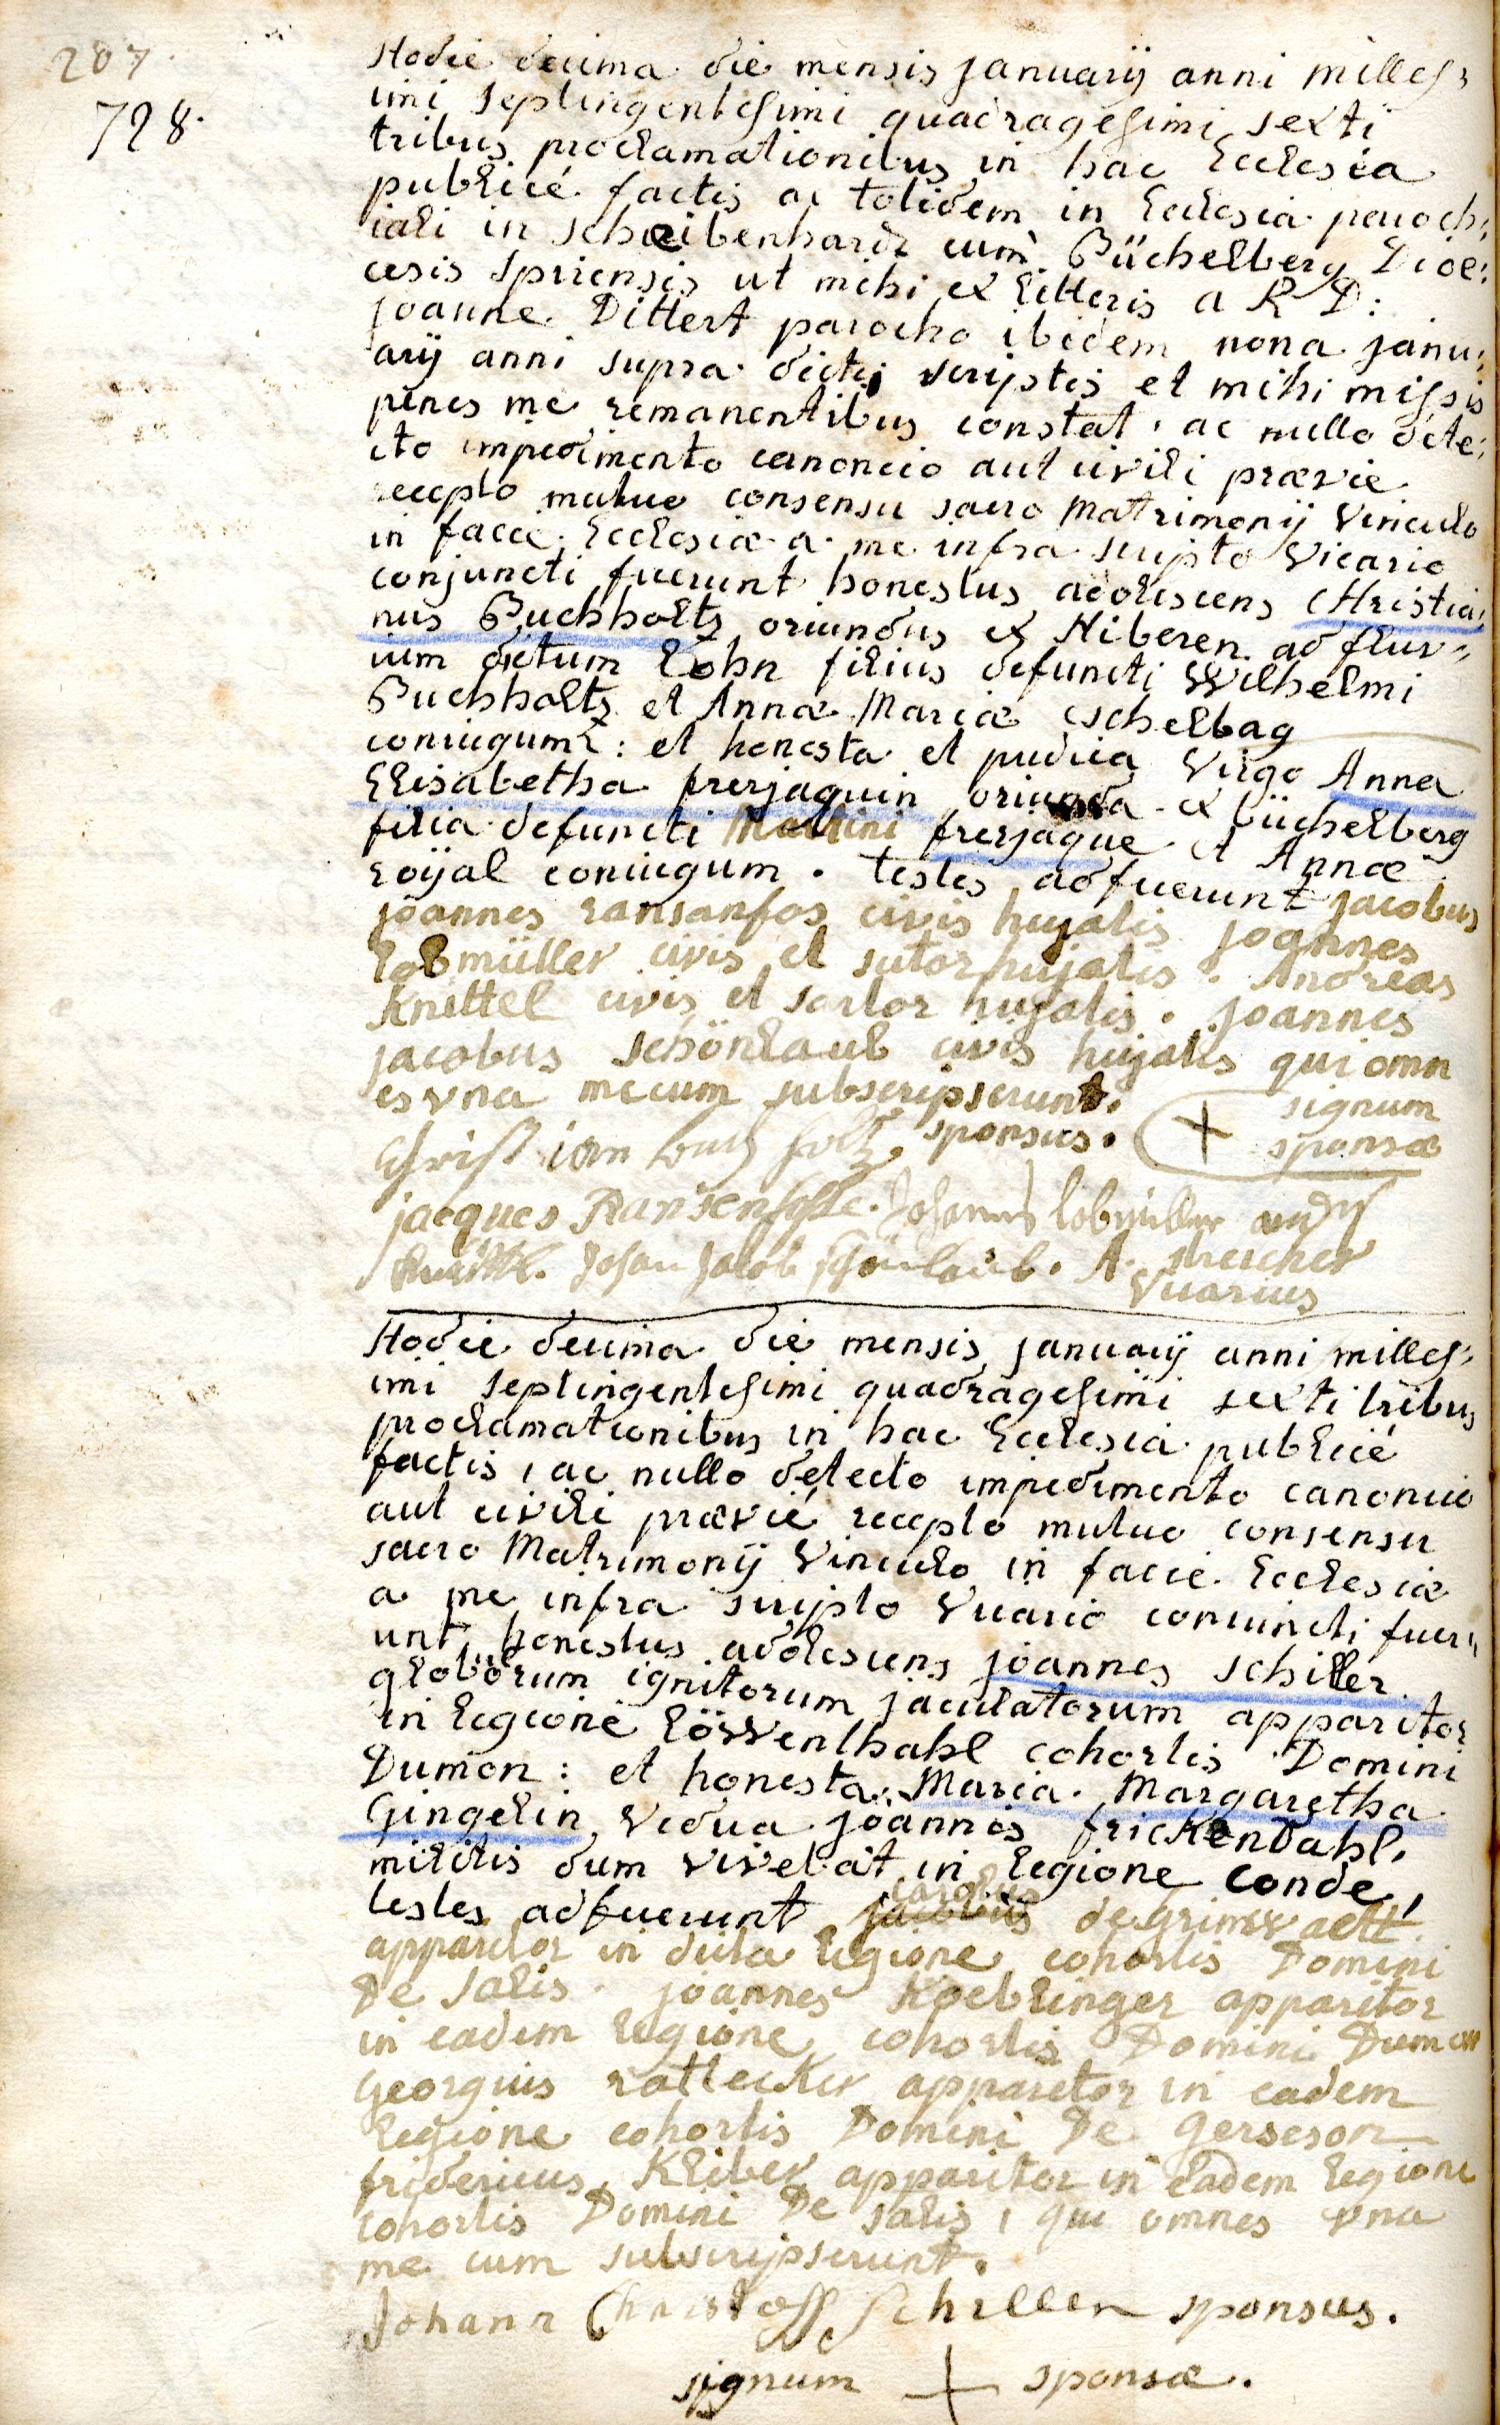 287.
728.
Hodie decima die mensis januarij anni milles:
imi septingentesimi quadragesimi sexti
tribus proclamationibus in hac Ecclesia
publicé factis ac totidem in Ecclesia paroch:
iali in scheibenhardt cum Büchelberg Dioe:
cesis spirensis ut mihi ex litteris a R D:
joanne Dittert parocho ibidem nona janu:
arij anni supra dicti scriptis et mihi missis
penes me remanentibus constat, ac nullo dete:
cto impedimento canonico aut civili prævie
recepto mutuo consensu sacro Matrimonij Vinculo
in facie Ecclesiæ a me infra scripto Vicario
conjuncti fuerunt honestus adolescens Christia:
nus Buchholtz oriundus ex Niberen ad fluv:
ium dictum Lohn filius defuncti Wilhelmi
Buchholtz et Annæ Mariæ schelbag
coniugum: et honesta et pudica Virgo Anna
Elisabetha frerjaquin oriunda ex büchelberg
filia defuncti Martini frerjaque et Annæ
roijal coniugum. testes adfuerunt jacobus
joannes ransanfos civis hujatis joannes
lobmüller civis et sutor hujatis. Andreas
Knittel civis et sartor hujatis. joannes
jacobus schönlaub civis hujatis qui omn
es vna mecum subscripserunt.
Christian buchholtz. sponsus. + signum
sponsæ
jacques Ransenfosse. Johannes lobmüller andres
Knittel. Johan Jacob schönlaub. A. streicher
Vicarius
Hodie decima die mensis januarij anni milles:
imi septingentesimi quadragesimi sexti tribus
proclamationibus in hac Ecclesia publicé
factis, ac nullo detecto impedimento canonico
aut civili prævié recepto mutuo consensu
sacro Matrimonij Vinculo in facie Ecclesiæ
a me infra scripto Vicario coniuncti fuer:
unt honestus adolescens joannes schiller
globorum ignitorum jaculatorum apparitor
in legione Lövventhahl cohortis Domini
Dumon: et honesta Maria Margaretha
Gingelin, Vidua joannis frickendahl,
militis dum vivebat in legione Conde,
testes adfuerunt carolus degrimvaett
apparitor in dicta legione cohortis Domini
De salis. joannes Koeblinger apparitor
in eadem legione cohortis Domini Dumon
Georgius rattecker apparitor in eadem
legione cohortis Domini De Gerseson
fridericus Kliber apparitor in eadem legione
cohortis Domini De salis, qui omnes vna
me cum subscripserunt.
Johann Christoff Schiller sponsus.
signum + sponsæ.